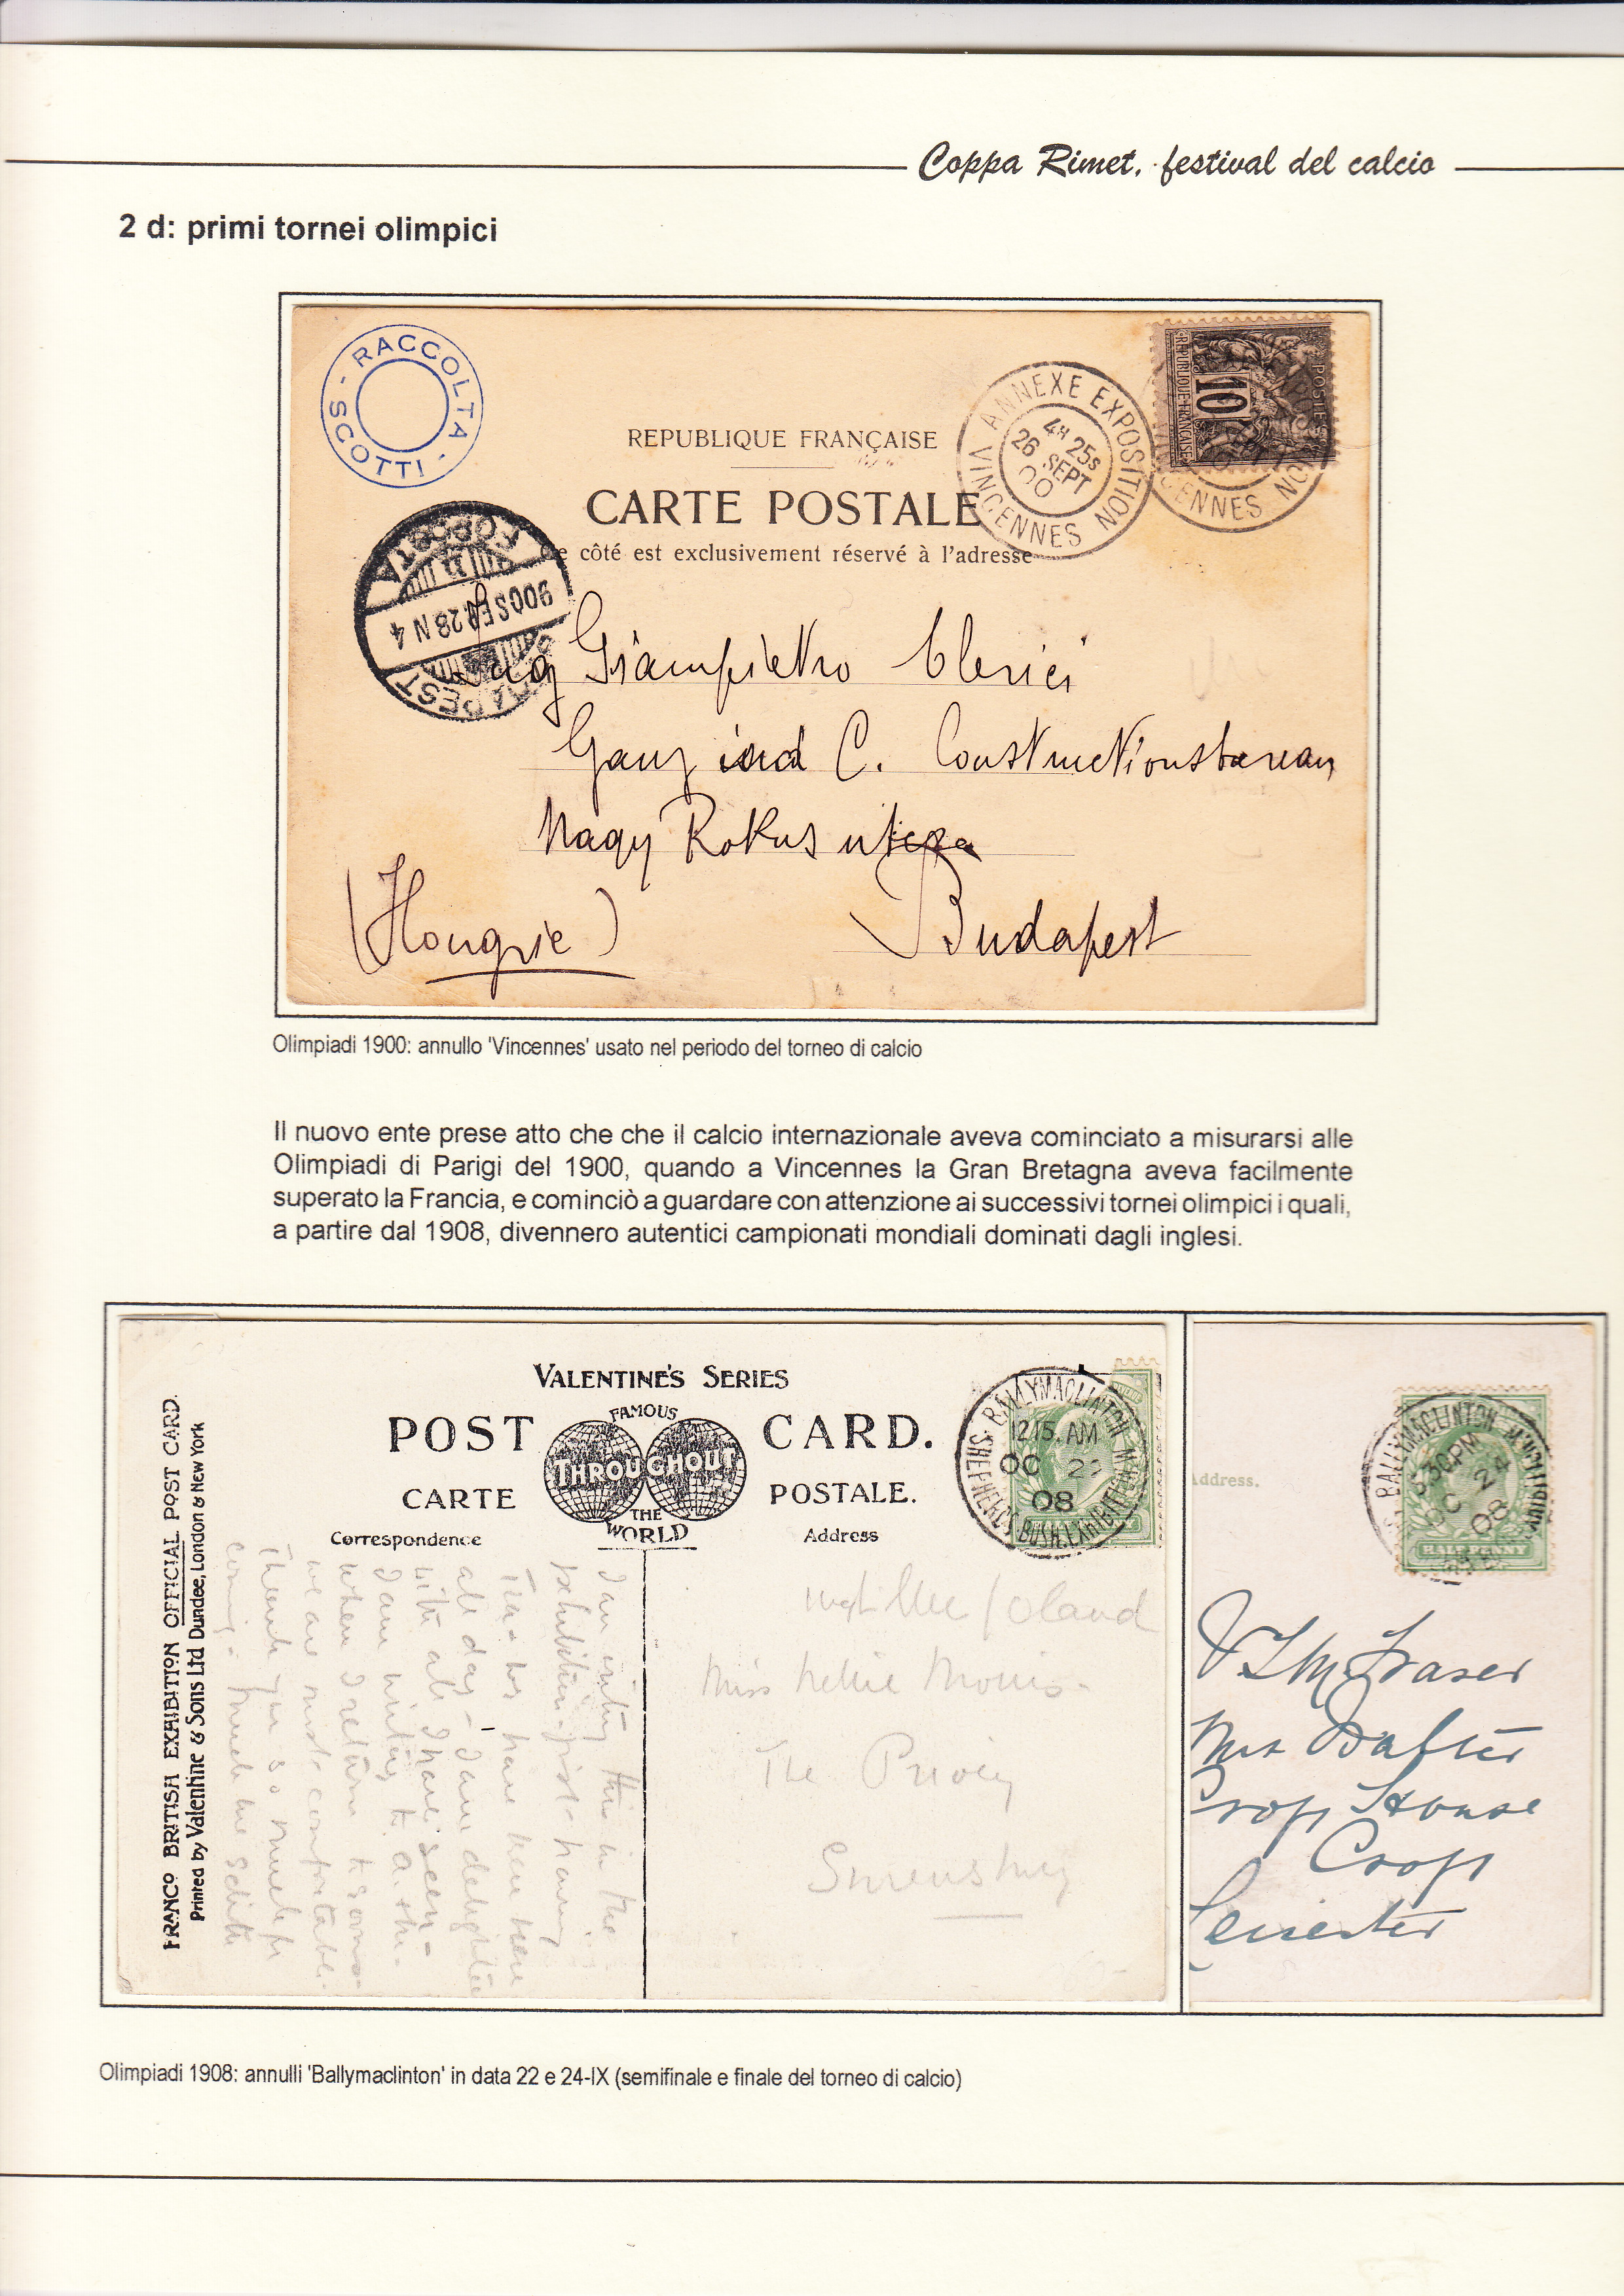 Coppa Rimet, festival del calcio
2 d: primi tornei olimpici
- RACCOLTA - SCOTTI
REPUBLIQUE FRANÇAISE
CARTE POSTALE
Ce côté est exclusivement réservé à l'adresse
ANNEXE EXPOSITION
4H 25S
26 SEPT
00
VINCENNES
POSTES
10
REPUBLIQUE FRANÇAISE
900 SEP. 28 N 4
Ing Giampietro Clerici
Ganz und C. Constructionsbureau
Nagy Rokus utcza
Budapest
(Hongrie)
Olimpiadi 1900: annullo 'Vincennes' usato nel periodo del torneo di calcio
Il nuovo ente prese atto che che il calcio internazionale aveva cominciato a misurarsi alle
Olimpiadi di Parigi del 1900, quando a Vincennes la Gran Bretagna aveva facilmente
superato la Francia, e cominciò a guardare con attenzione ai successivi tornei olimpici i quali,
a partire dal 1908, divennero autentici campionati mondiali dominati dagli inglesi.
FRANCO BRITISH EXHIBITION OFFICIAL POST CARD.
Printed by Valentine & Sons Ltd. Dundee, London & New York
VALENTINE'S SERIES
POST CARD.
FAMOUS
THROUGHOUT
THE
WORLD
CARTE POSTALE.
Correspondence
Address
BALLYMACLINTON
12.15. AM
OC 22
08
SHEPHERDS BUSH. EXHIBITION
I am writing this in the
Exhibition - just having
all day - I am delighted
with all I have seen -
I am writing to
when I return to
we are most comfortable.
Thank you so much for
Miss Nellie Morris -
The Priory
Shrewsbury
Address.
BALLYMACLINTON
6.30 PM
OC 24
08
HALF PENNY
Fraser
Mrs
Crop House
Crop
Leicester
Olimpiadi 1908: annulli 'Ballymaclinton' in data 22 e 24-IX (semifinale e finale del torneo di calcio)